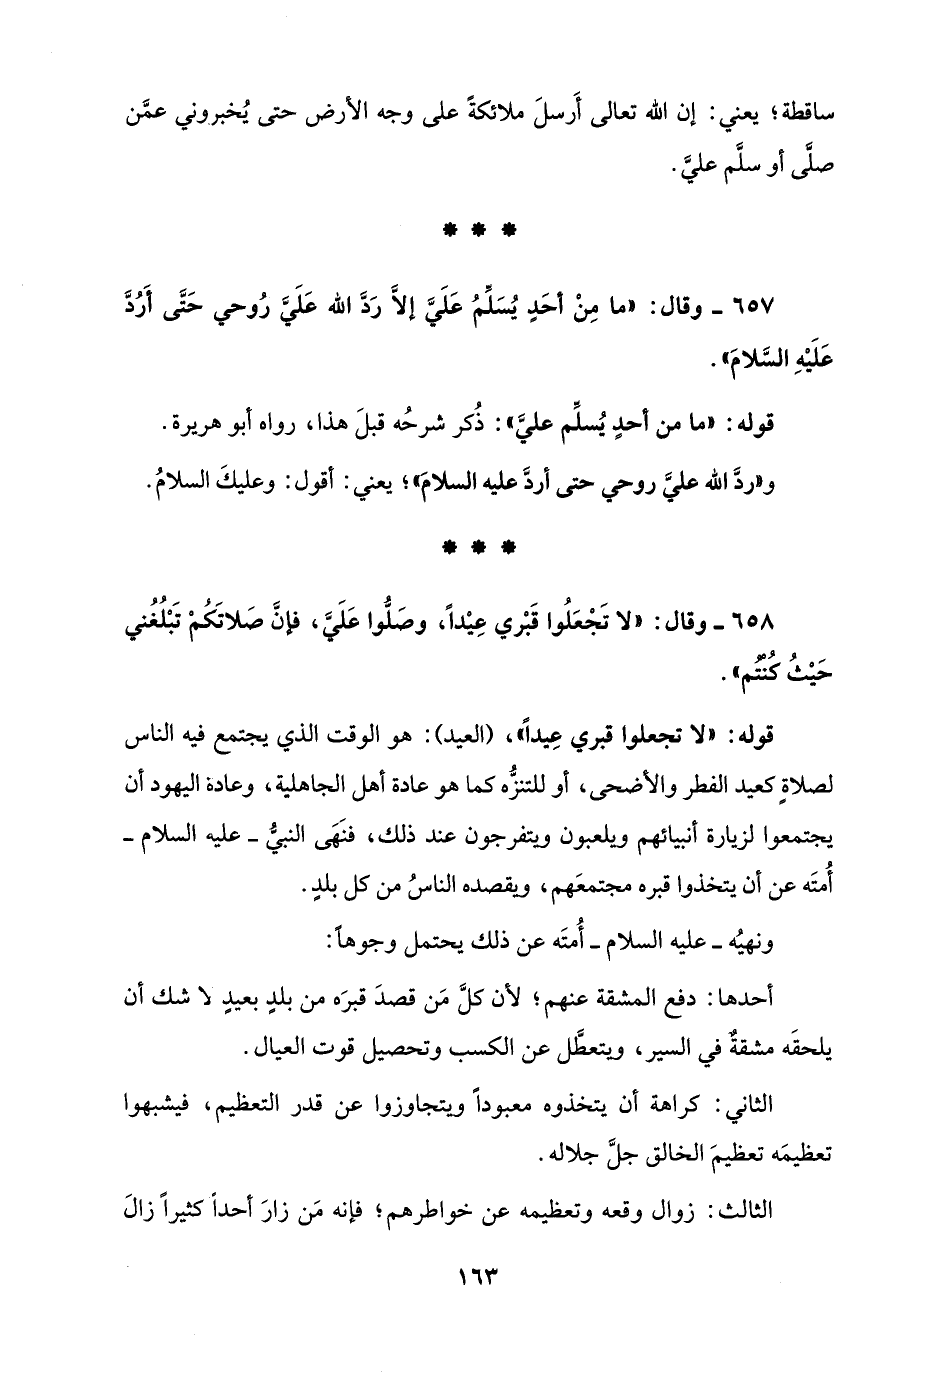 ساقطة؛ يعني: إن الله تعالى أَرسلَ ملائكةً على وجه الأرض حتى يُخبروني عمَّن
صلَّى أو سلَّم عليَّ.
* * *
٦٥٧ ـ وقال: «ما مِنْ أحَدٍ يُسَلِّمُ عَلَيَّ إلاَّ رَدَّ الله عَلَيَّ رُوحي حَتَّى أَرُدَّ
عَلَيْهِ السَّلامَ».
قوله: «ما من أحدٍ يُسلِّم عليَّ»: ذُكر شرحُه قبلَ هذا، رواه أبو هريرة.
و«ردَّ الله عليَّ روحي حتى أردَّ عليه السلامَ»؛ يعني: أقول: وعليكَ السلامُ.
* * *
٦٥٨ ـ وقال: «لا تَجْعَلُوا قَبْري عِيْداً، وصَلُّوا عَلَيَّ، فإنَّ صَلاتَكُمْ تَبْلُغُني
حَيْثُ كُنْتُم».
قوله: «لا تجعلوا قبري عِيداً»، (العيد): هو الوقت الذي يجتمع فيه الناس
لصلاةٍ كعيد الفطر والأضحى، أو للتنزُّه كما هو عادة أهل الجاهلية، وعادة اليهود أن
يجتمعوا لزيارة أنبيائهم ويلعبون ويتفرجون عند ذلك، فنَهَى النبيُّ ـ عليه السلام ـ
أُمتَه عن أن يتخذوا قبره مجتمعَهم، ويقصده الناسُ من كل بلدٍ.
ونهيُه ـ عليه السلام ـ أُمتَه عن ذلك يحتمل وجوهاً:
أحدها: دفع المشقة عنهم؛ لأن كلَّ مَن قصدَ قبرَه من بلدٍ بعيدٍ لا شك أن
يلحقَه مشقةٌ في السير، ويتعطَّل عن الكسب وتحصيل قوت العيال.
الثاني: كراهة أن يتخذوه معبوداً ويتجاوزوا عن قدر التعظيم، فيشبهوا
تعظيمَه تعظيمَ الخالق جلَّ جلاله.
الثالث: زوال وقعه وتعظيمه عن خواطرهم؛ فإنه مَن زارَ أحداً كثيراً زالَ
١٦٣